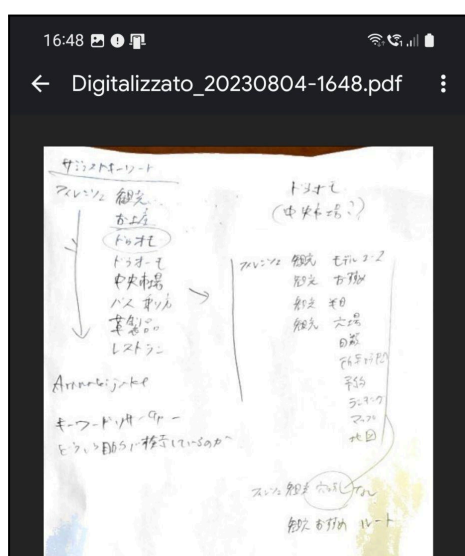 16:48
Digitalizzato_20230804-1648.pdf
サジェストキーワード
フィレンツェ 観光
お土産
ドゥオモ
ドゥオーモ
中央市場
バス 乗り方
革製品
レストラン
キーワードリサーチ
どういう目的で検索しているのか
ドゥオモ
(中央市場?)
フィレンツェ 観光 モデルコース
観光 お土産
観光 半日
観光 穴場
日数
所要時間
ランキング
マップ
地図
フィレンツェ 観光 穴場
観光 おすすめ ルート